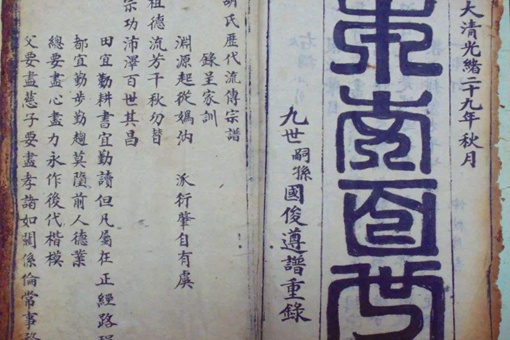 大清光緒二十九年秋月
百世
九世嗣孫國俊遵譜重錄
胡氏歷代流傳宗譜
錄呈家訓
淵源起從媯汭 派衍肇自有虞
祖德流芳千秋勿替
宗功沛澤百世其昌
田宜勤耕書宜勤讀但凡屬在正經路
都宜勤步勤趨莫墮前人德業
總要盡心盡力永作後代楷模
父要盡慈子要盡孝諸如關係倫常事